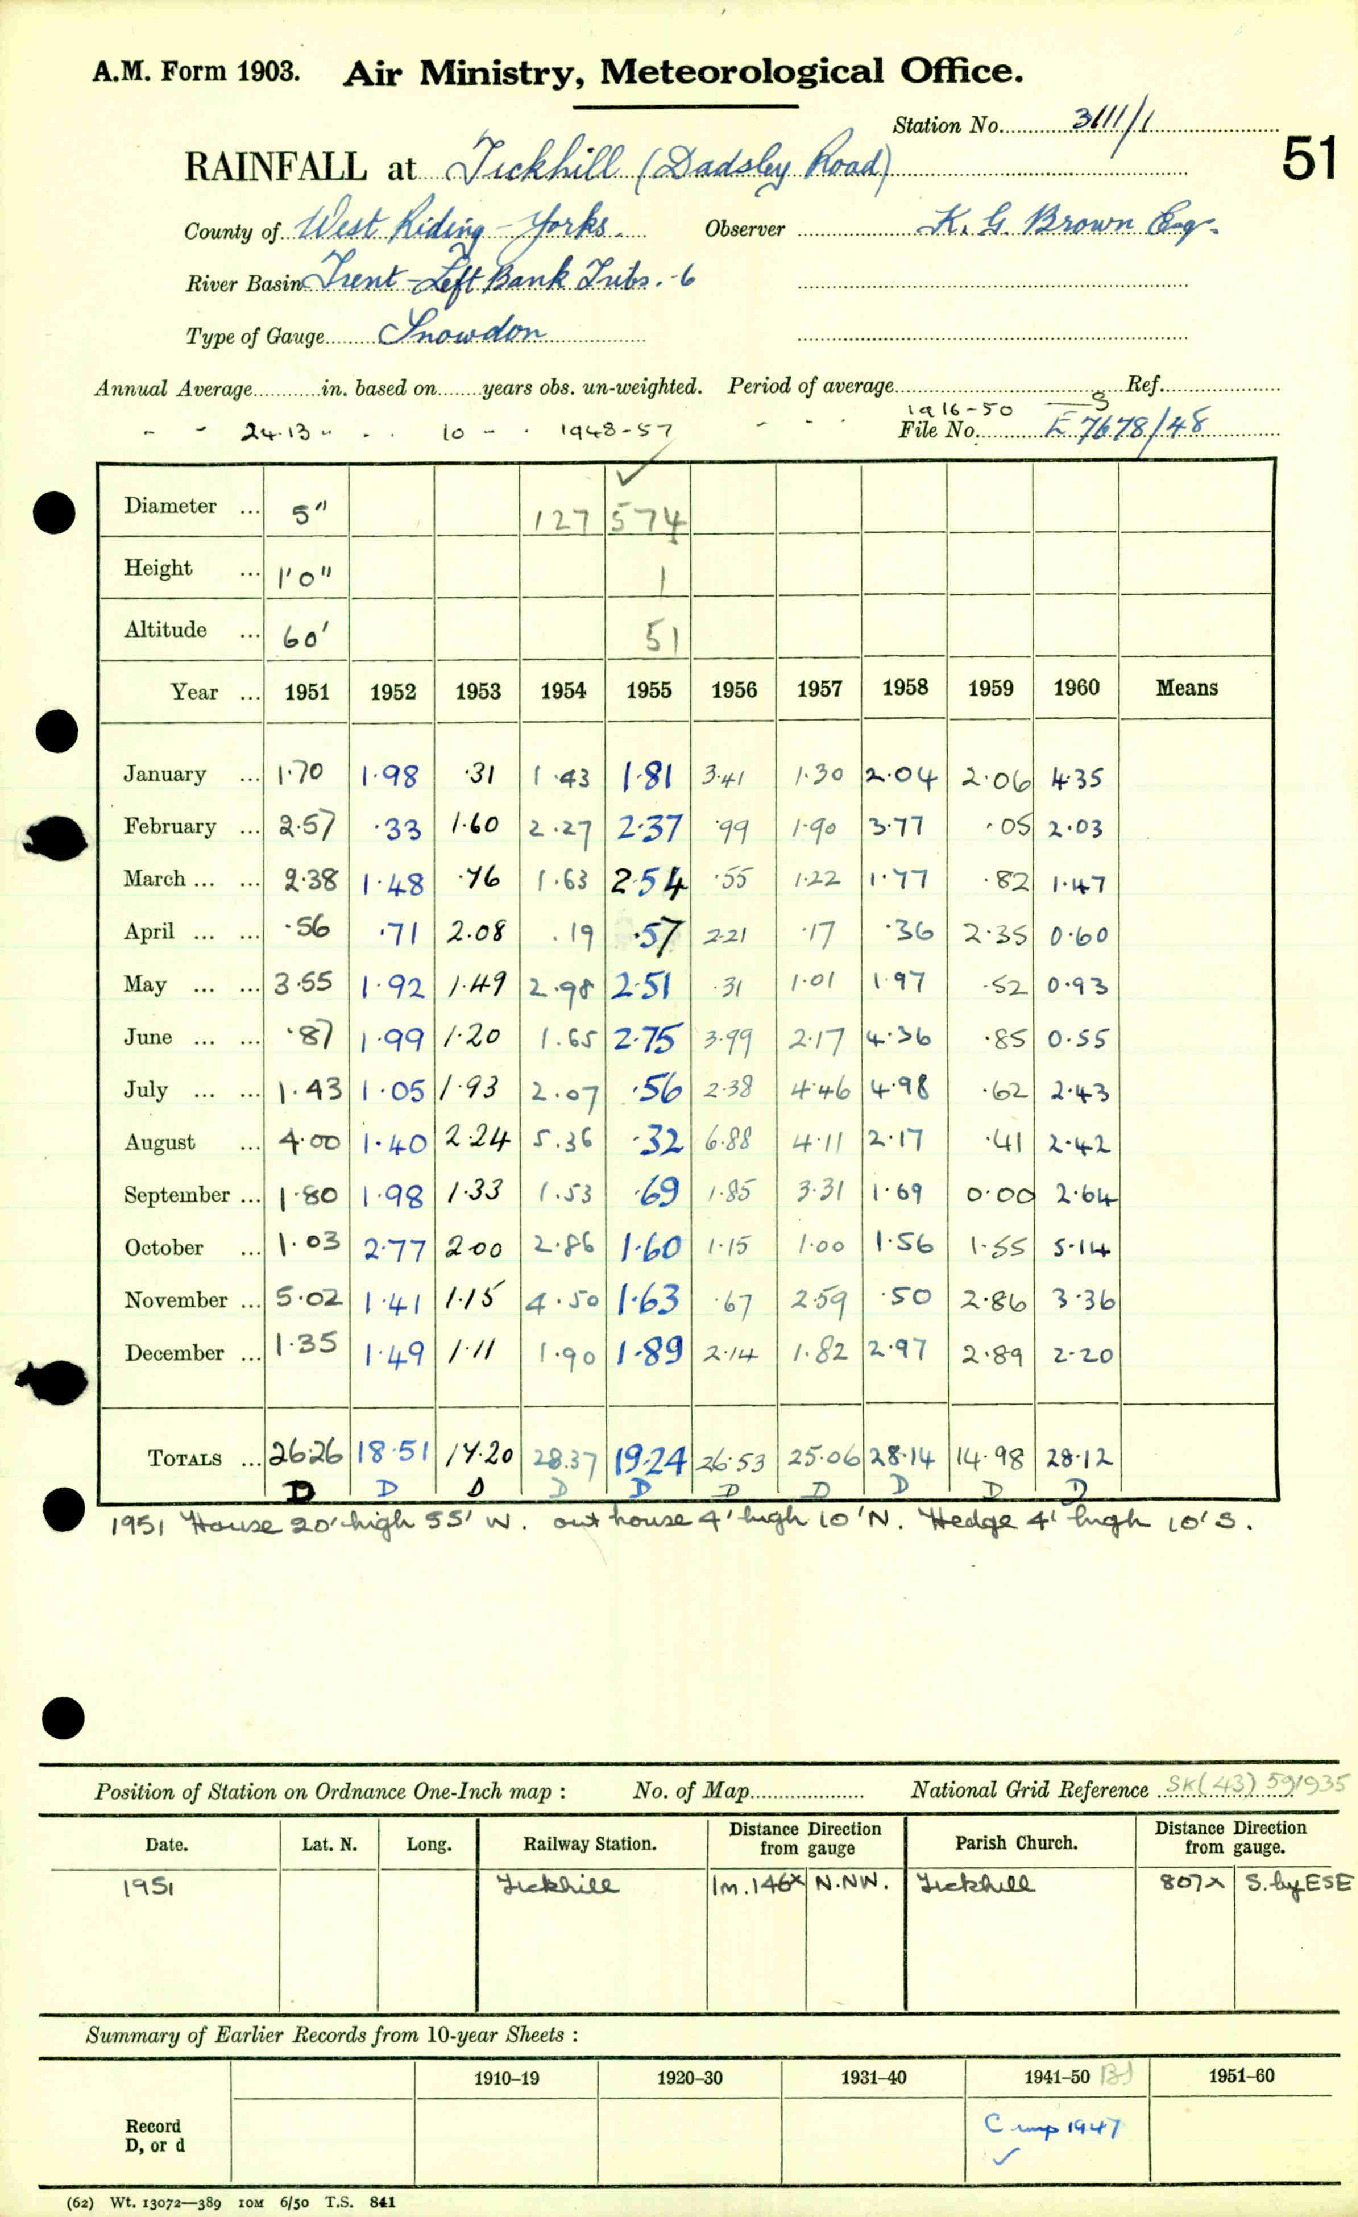 A.M. Form 1903. Air Ministry, Meteorological Office.
Station No. 3111/1
51
RAINFALL at Tickhill (Dadsley Road)
County of West Riding - Yorks. Observer K. G. Brown Esq.
River Basin Trent - Left Bank Tribs. - 6
Type of Gauge Snowdon
Annual Average in. based on years obs. un-weighted. Period of average Ref.
- - 24.13 " . . 10 - . 1948-57 - - - 1916-50 S
File No. E 7678/48
Diameter ... 5" 127 574
Height ... 1'0" 1
Altitude ... 60' 51
Year ... 1951 1952 1953 1954 1955 1956 1957 1958 1959 1960 Means
January ... 1.70 1.98 .31 1.43 1.81 3.41 1.30 2.04 2.06 4.35
February ... 2.57 .33 1.60 2.27 2.37 .99 1.90 3.77 .05 2.03
March ... ... 2.38 1.48 .76 1.63 2.54 .55 1.22 1.77 .82 1.47
April ... ... .56 .71 2.08 .19 .57 2.21 .17 .36 2.35 0.60
May ... ... 3.55 1.92 1.49 2.98 2.51 .31 1.01 1.97 .52 0.93
June ... ... .87 1.99 1.20 1.65 2.75 3.99 2.17 4.36 .85 0.55
July ... ... 1.43 1.05 1.93 2.07 .56 2.38 4.46 4.98 .62 2.43
August ... 4.00 1.40 2.24 5.36 .32 6.88 4.11 2.17 .41 2.42
September ... 1.80 1.98 1.33 1.53 .69 1.85 3.31 1.69 0.00 2.64
October ... 1.03 2.77 2.00 2.86 1.60 1.15 1.00 1.56 1.55 5.14
November ... 5.02 1.41 1.15 4.50 1.63 .67 2.59 .50 2.86 3.36
December ... 1.35 1.49 1.11 1.90 1.89 2.14 1.82 2.97 2.89 2.20
TOTALS ... 26.26 18.51 17.20 28.37 19.24 26.53 25.06 28.14 14.98 28.12
D D D D D D D D D D
1951 House 20' high 55' W. out house 4' high 10' N. Hedge 4' high 10' S.
Position of Station on Ordnance One-Inch map : No. of Map National Grid Reference SK(43) 591935
Date. Lat. N. Long. Railway Station. Distance from gauge Direction Parish Church. Distance from Direction gauge.
1951 Tickhill 1m. 146x N.NW. Tickhill 807x S. by ESE
Summary of Earlier Records from 10-year Sheets :
1910–19 1920–30 1931–40 1941–50 1951–60
Record
D, or d
C 1947
(62) Wt. 13072—389 10M 6/50 T.S. 841